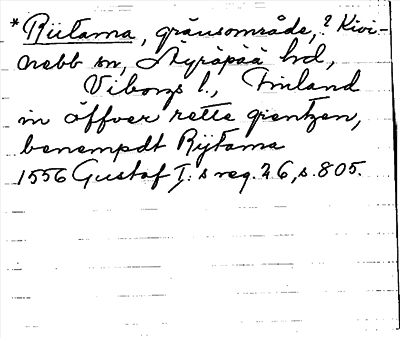 * Riitama, gränsområde, ? Kivi-
nebb sn, Äyräpää hd,
Viborgs l., Finland
in öffver rette grentzen,
benempdt Rijtama
1556 Gustaf I:s reg. 26, s. 805.